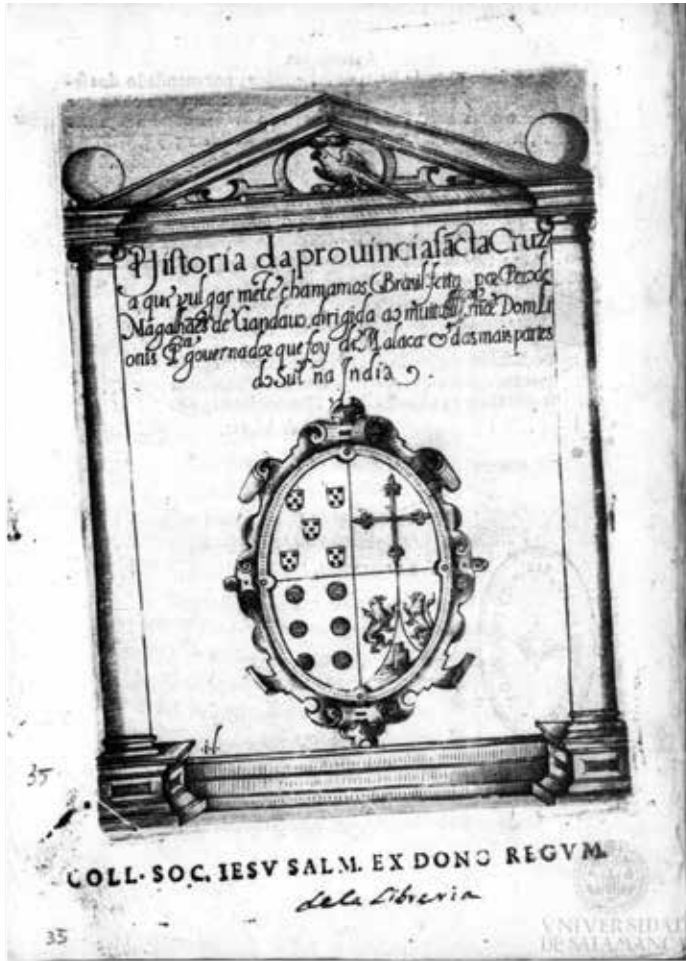 Historia da prouincia sãcta Cruz
a que vulgarmẽte chamamos Brasil feita por Pero de
Magalhães de Gandauo, dirigida ao muito Illsre sñor Dom Li
onis Pra gouernador que foy de Malaca & das mais partes
do Sul na India
i.l.
35
COLL. SOC. IESV SALM. EX DONO REGVM.
dela Libreria
35
VNIVERSIDAD
DE SALAMANCA